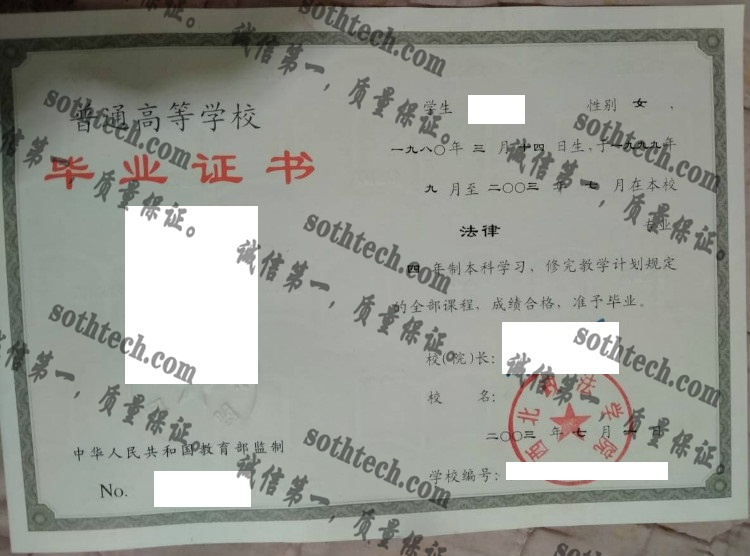 普通高等学校
毕业证书
中华人民共和国教育部监制
No.
学生 性别 女 ，
一九八〇年 三 月 十四 日生，于一九九九年
九 月至 二〇〇三 年 七 月在本校
法律 专业
四 年制本科学习，修完教学计划规定
的全部课程，成绩合格，准予毕业。
校(院)长：
校 名：
西北 法学院
二〇〇三 年 七 月 一 日
学校编号：
sothtech.com
诚信第一，质量保证。
sothtech.com
诚信第一，质量保证。
sothtech.com
诚信第一，质量保证。
sothtech.com
诚信第一，质量保证。
sothtech.com
诚信第一，质量保证。
sothtech.com
诚信第一，质量保证。
sothtech.com
诚信第一，质量保证。